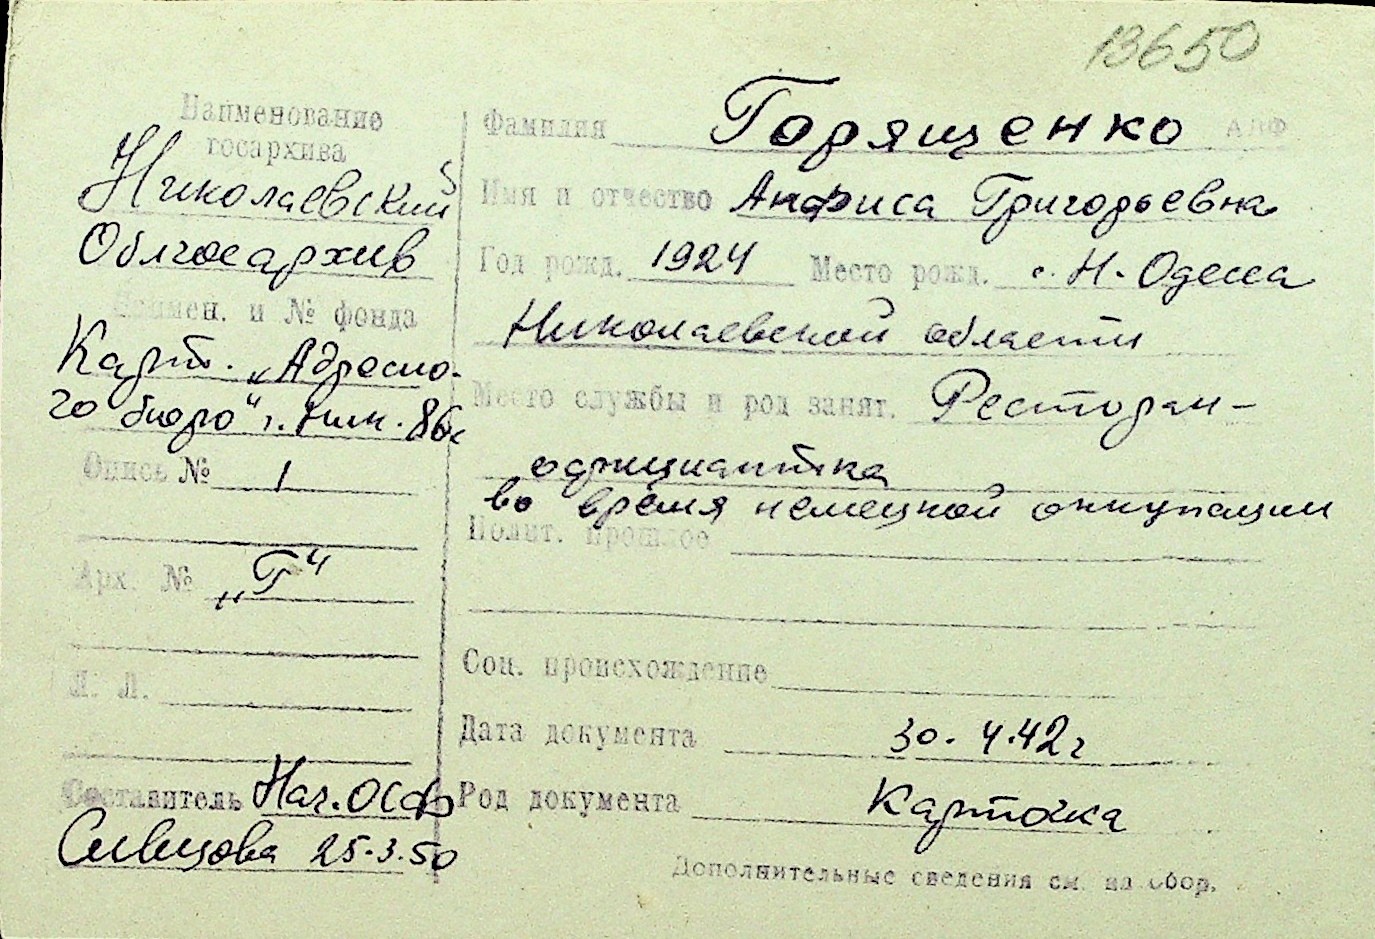 13650
Наименование
госархива
Николаевский
Облгосархив
Наимен. и № фонда
Карт. „Адресно-
го бюро" г. Ник.
Опись № 1
Арх. № „Г"
Л. Л.
Составитель Нач. ОСФ
25.3.50
Фамилия Горященко АЛФ
Имя и отчество Анфиса Григорьевна
Год рожд. 1924 Место рожд. с. Н. Одесса
Николаевской области
Место службы и род занят. Ресторан-
официантка
во время немецкой оккупации
Полит. прошлое
Соц. происхождение
Дата документа 30.4.42г
Род документа Карточка
Дополнительные сведения см. на обор.